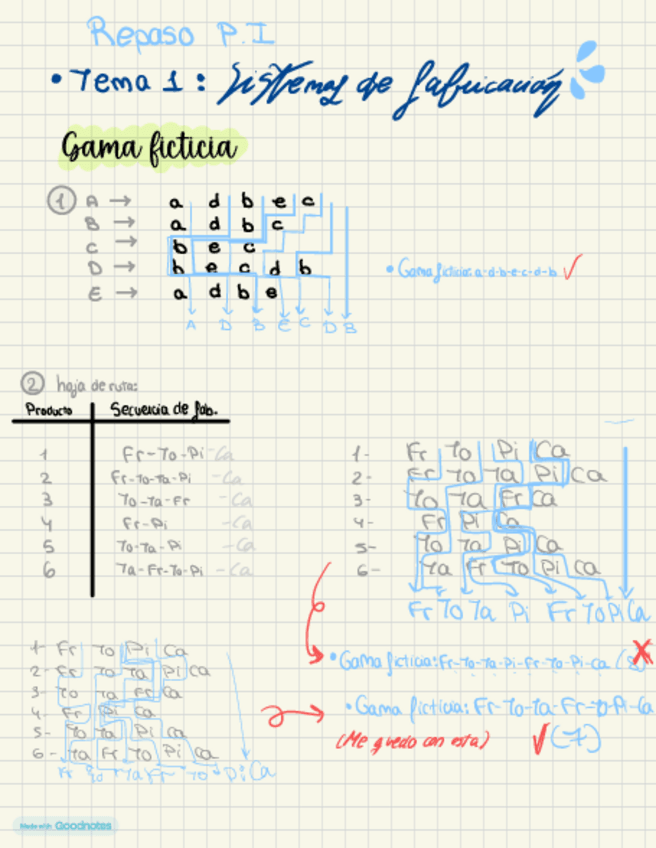 Repaso P.I
• Tema 1 : Sistemas de fabricación
Gama ficticia
① A → a d b e c
B → a d b c
C → b e c
D → b e c d b
E → a d b e
A D B E C D B
• Gama ficticia: a-d-b-e-c-d-b ✓
② hoja de ruta:
Producto Secuencia de fab.
1 Fr-To-Pi-Ca
2 Fr-To-Ta-Pi-Ca
3 To-Ta-Fr-Ca
4 Fr-Pi-Ca
5 To-Ta-Pi-Ca
6 Ta-Fr-To-Pi-Ca
1- Fr To Pi Ca
2- Fr To Ta Pi Ca
3- To Ta Fr Ca
4- Fr Pi Ca
5- To Ta Pi Ca
6- Ta Fr To Pi Ca
Fr To Ta Pi Fr To Pi Ca
• Gama ficticia: Fr-To-Ta-Pi-Fr-To-Pi-Ca (8) X
1- Fr To Pi Ca
2- Fr To Ta Pi Ca
3- To Ta Fr Ca
4- Fr Pi Ca
5- To Ta Pi Ca
6- Ta Fr To Pi Ca
Fr To Ta Fr To Pi Ca
• Gama ficticia: Fr-To-Ta-Fr-To-Pi-Ca
(Me quedo con esta) ✓ (7)
Made with Goodnotes